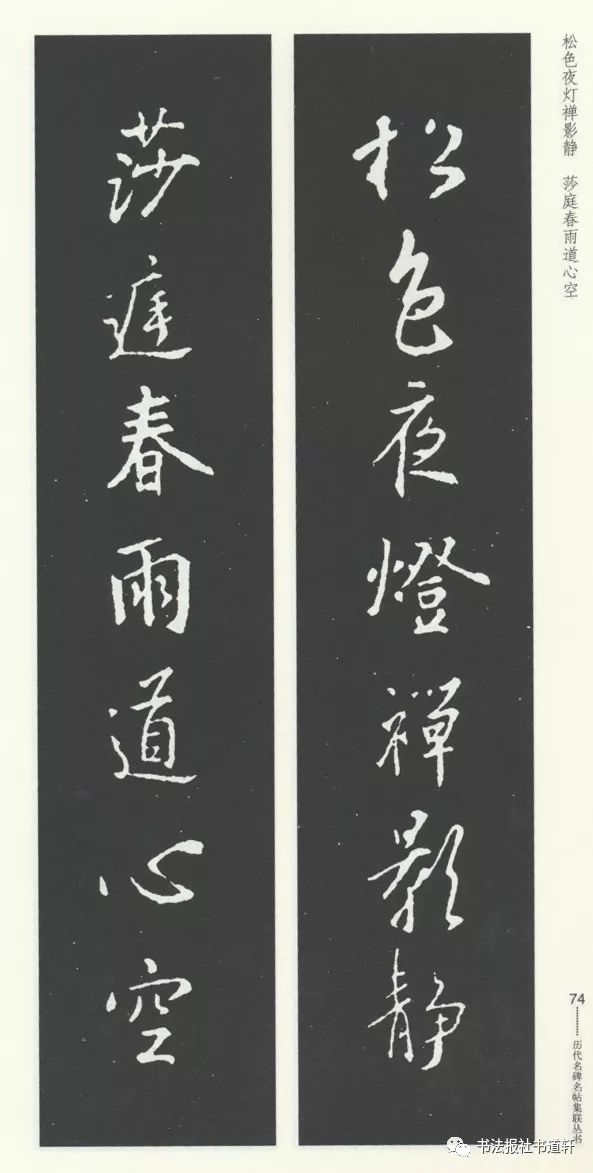 松色夜灯禅影静　莎庭春雨道心空
松色夜燈禪影静
莎庭春雨道心空
74
历代名碑名帖集联丛书
书法报社书道轩